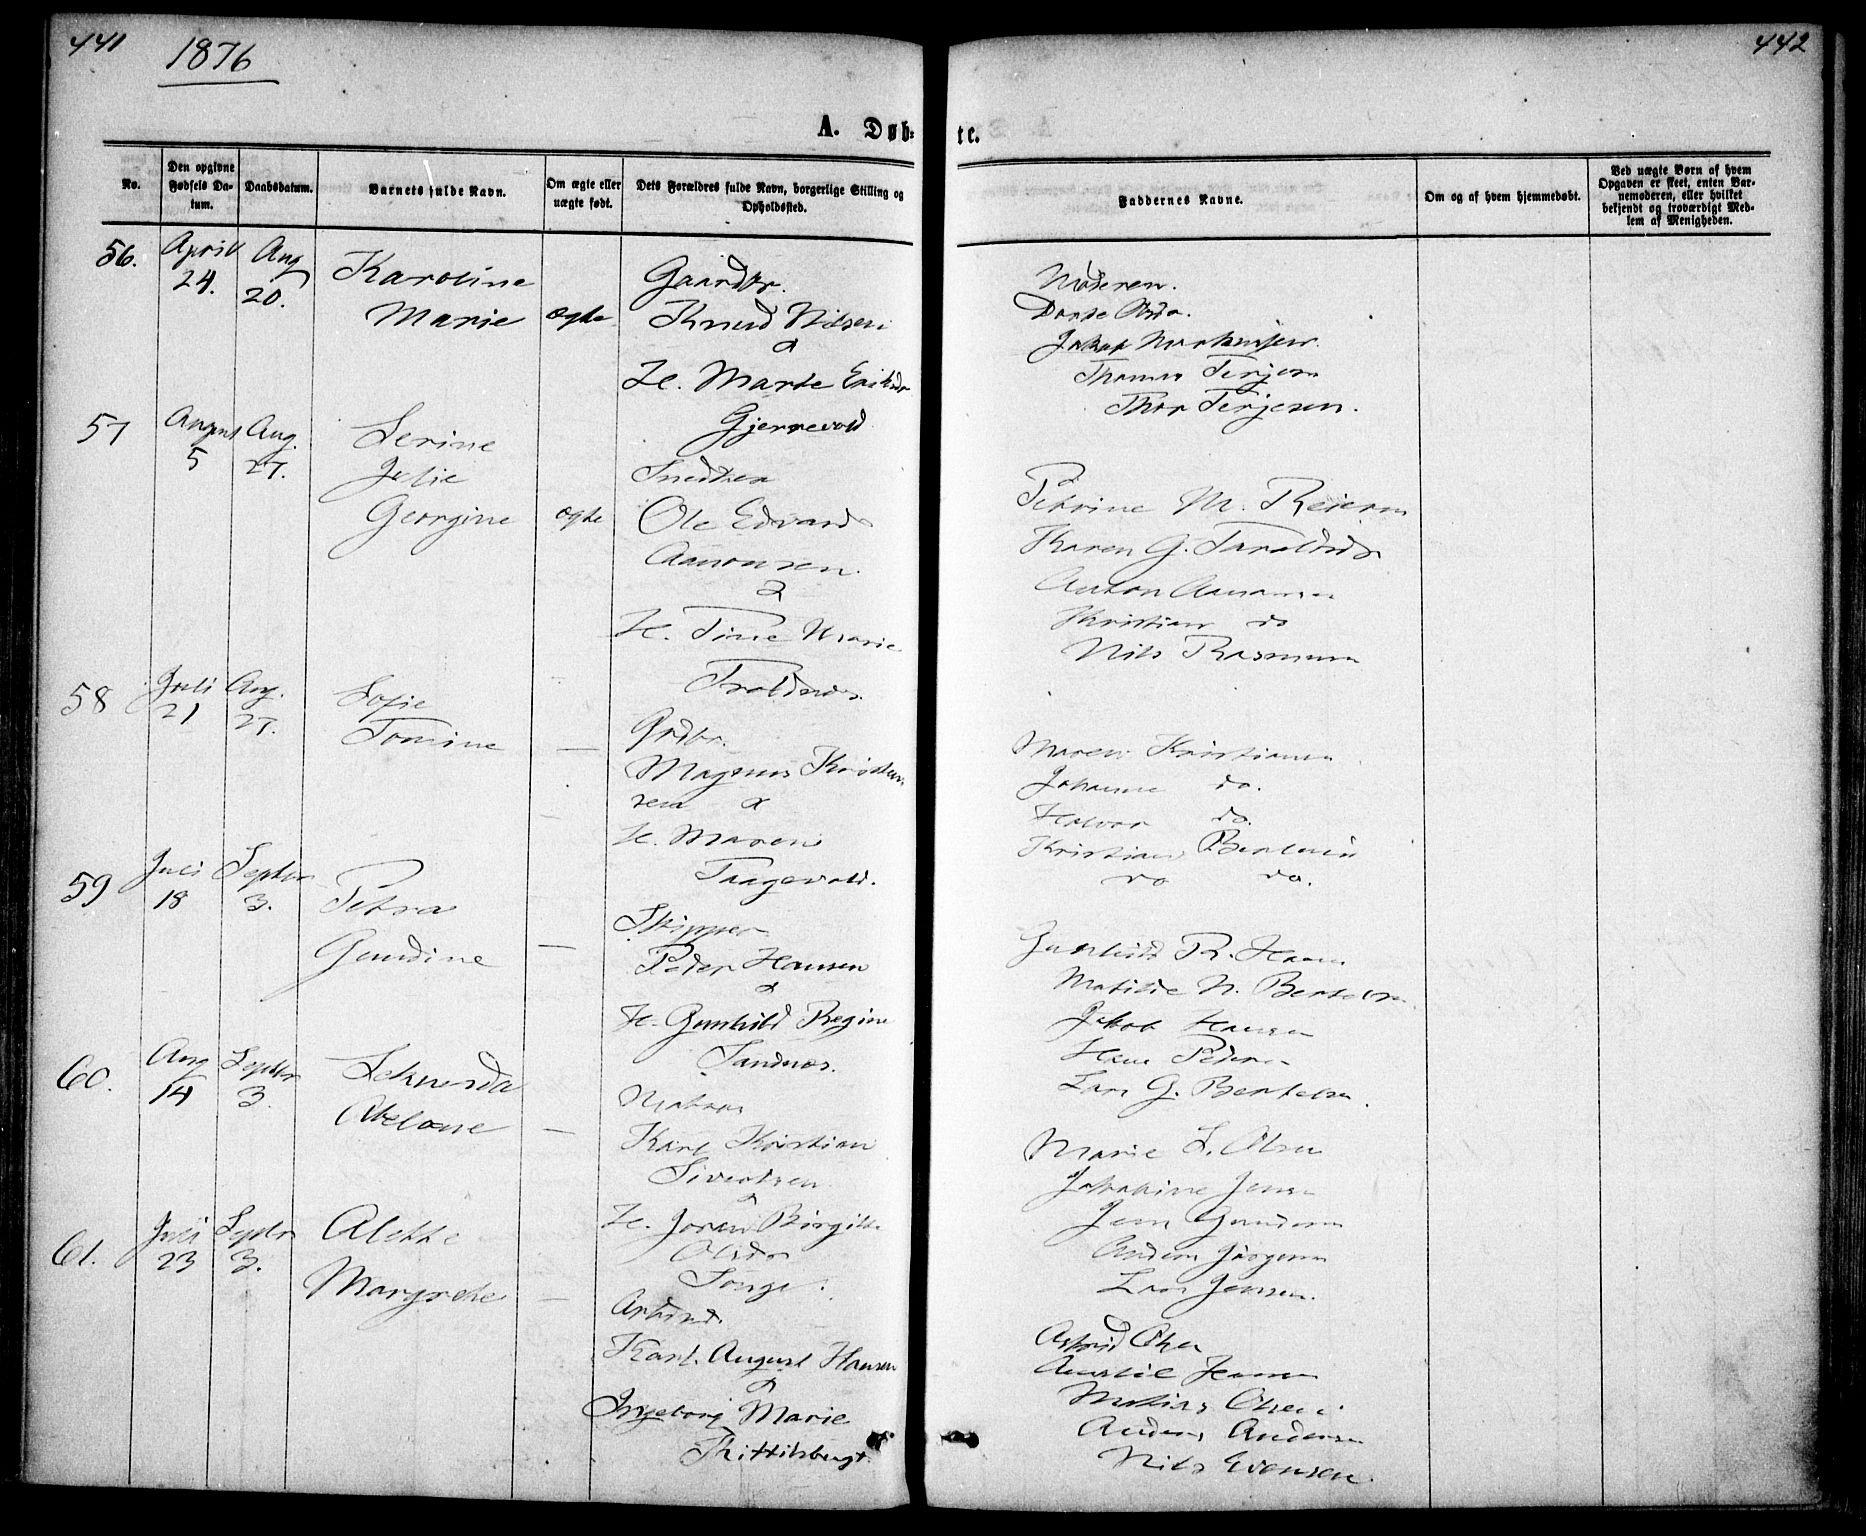 441
1876
442
A. Døb-
te.
No.
Den opgivne
Fødsels Da-
tum.
Daabsdatum.
Barnets fulde Navn.
Om ægte eller
uægte født.
Dets Forældres fulde Navn, borgerlige Stilling og
Opholdssted.
Faddernes Navne.
Om og af hvem hjemmedøbt.
Ved uægte Børn af hvem
Opgaven er skeet, enten Bar-
nemoderen, eller hvilket
bekjendt og troværdigt Med-
lem af Menigheden.
56.
April
24.
Aug
20.
Karoline
Marie
ægte
Gaardbr.
Knud Nilsen
&
H. Marte Eriksdr
Gjerrevold
Moderen.
Dorte
Jakob
Thomas Terjesen
Thor Terjesen.
57
August
5
Aug.
27.
Serine
Julie
Georgine
ægte
Snedker
Ole Edvard
Aanonsen.
&
H. Tine Marie
Petrine M. Reiersen
Karen G. Taraldsdr
Anton Aanonsen
Kristian do
Nils Rasmussen
58
Juli
21
Aug.
27.
Sofie
Tomine
—
Grdbr.
Magnus Kristian-
sen &
H. Maren
Traagevold.
Maren Kristiansen
Johanne do.
Halvor do.
Kristian Bentsen
do do.
59
Juli
18
Septbr
3.
Petra
Gundine
—
Skipper
Peder Hansen
&
H. Gunhild Regine
Sandnes.
Gunhild R. Hansen
Matilde N. Bertelsen
Jakob Hansen
Hans Pedersen
Lars G. Bertelsen.
60.
Aug
14
Septbr
3.
Abelone
—
Matros
Karl Kristian
Sivertsen
&
H. Joren Birgitte
Olsdr
Songe.
Marie L. Olsen
Jakobine Jensen
Jens Gundersen
Anders Jörgensen
Lars Jensen.
61.
Juli
23
Septbr
3.
Alette
Margrete
—
Arbeid.
Karl August Hansen
&
Ingeborg Marie
Astrid Olsen
Hansen
Matias Olsen
Anders Andersen
Nils Evensen.